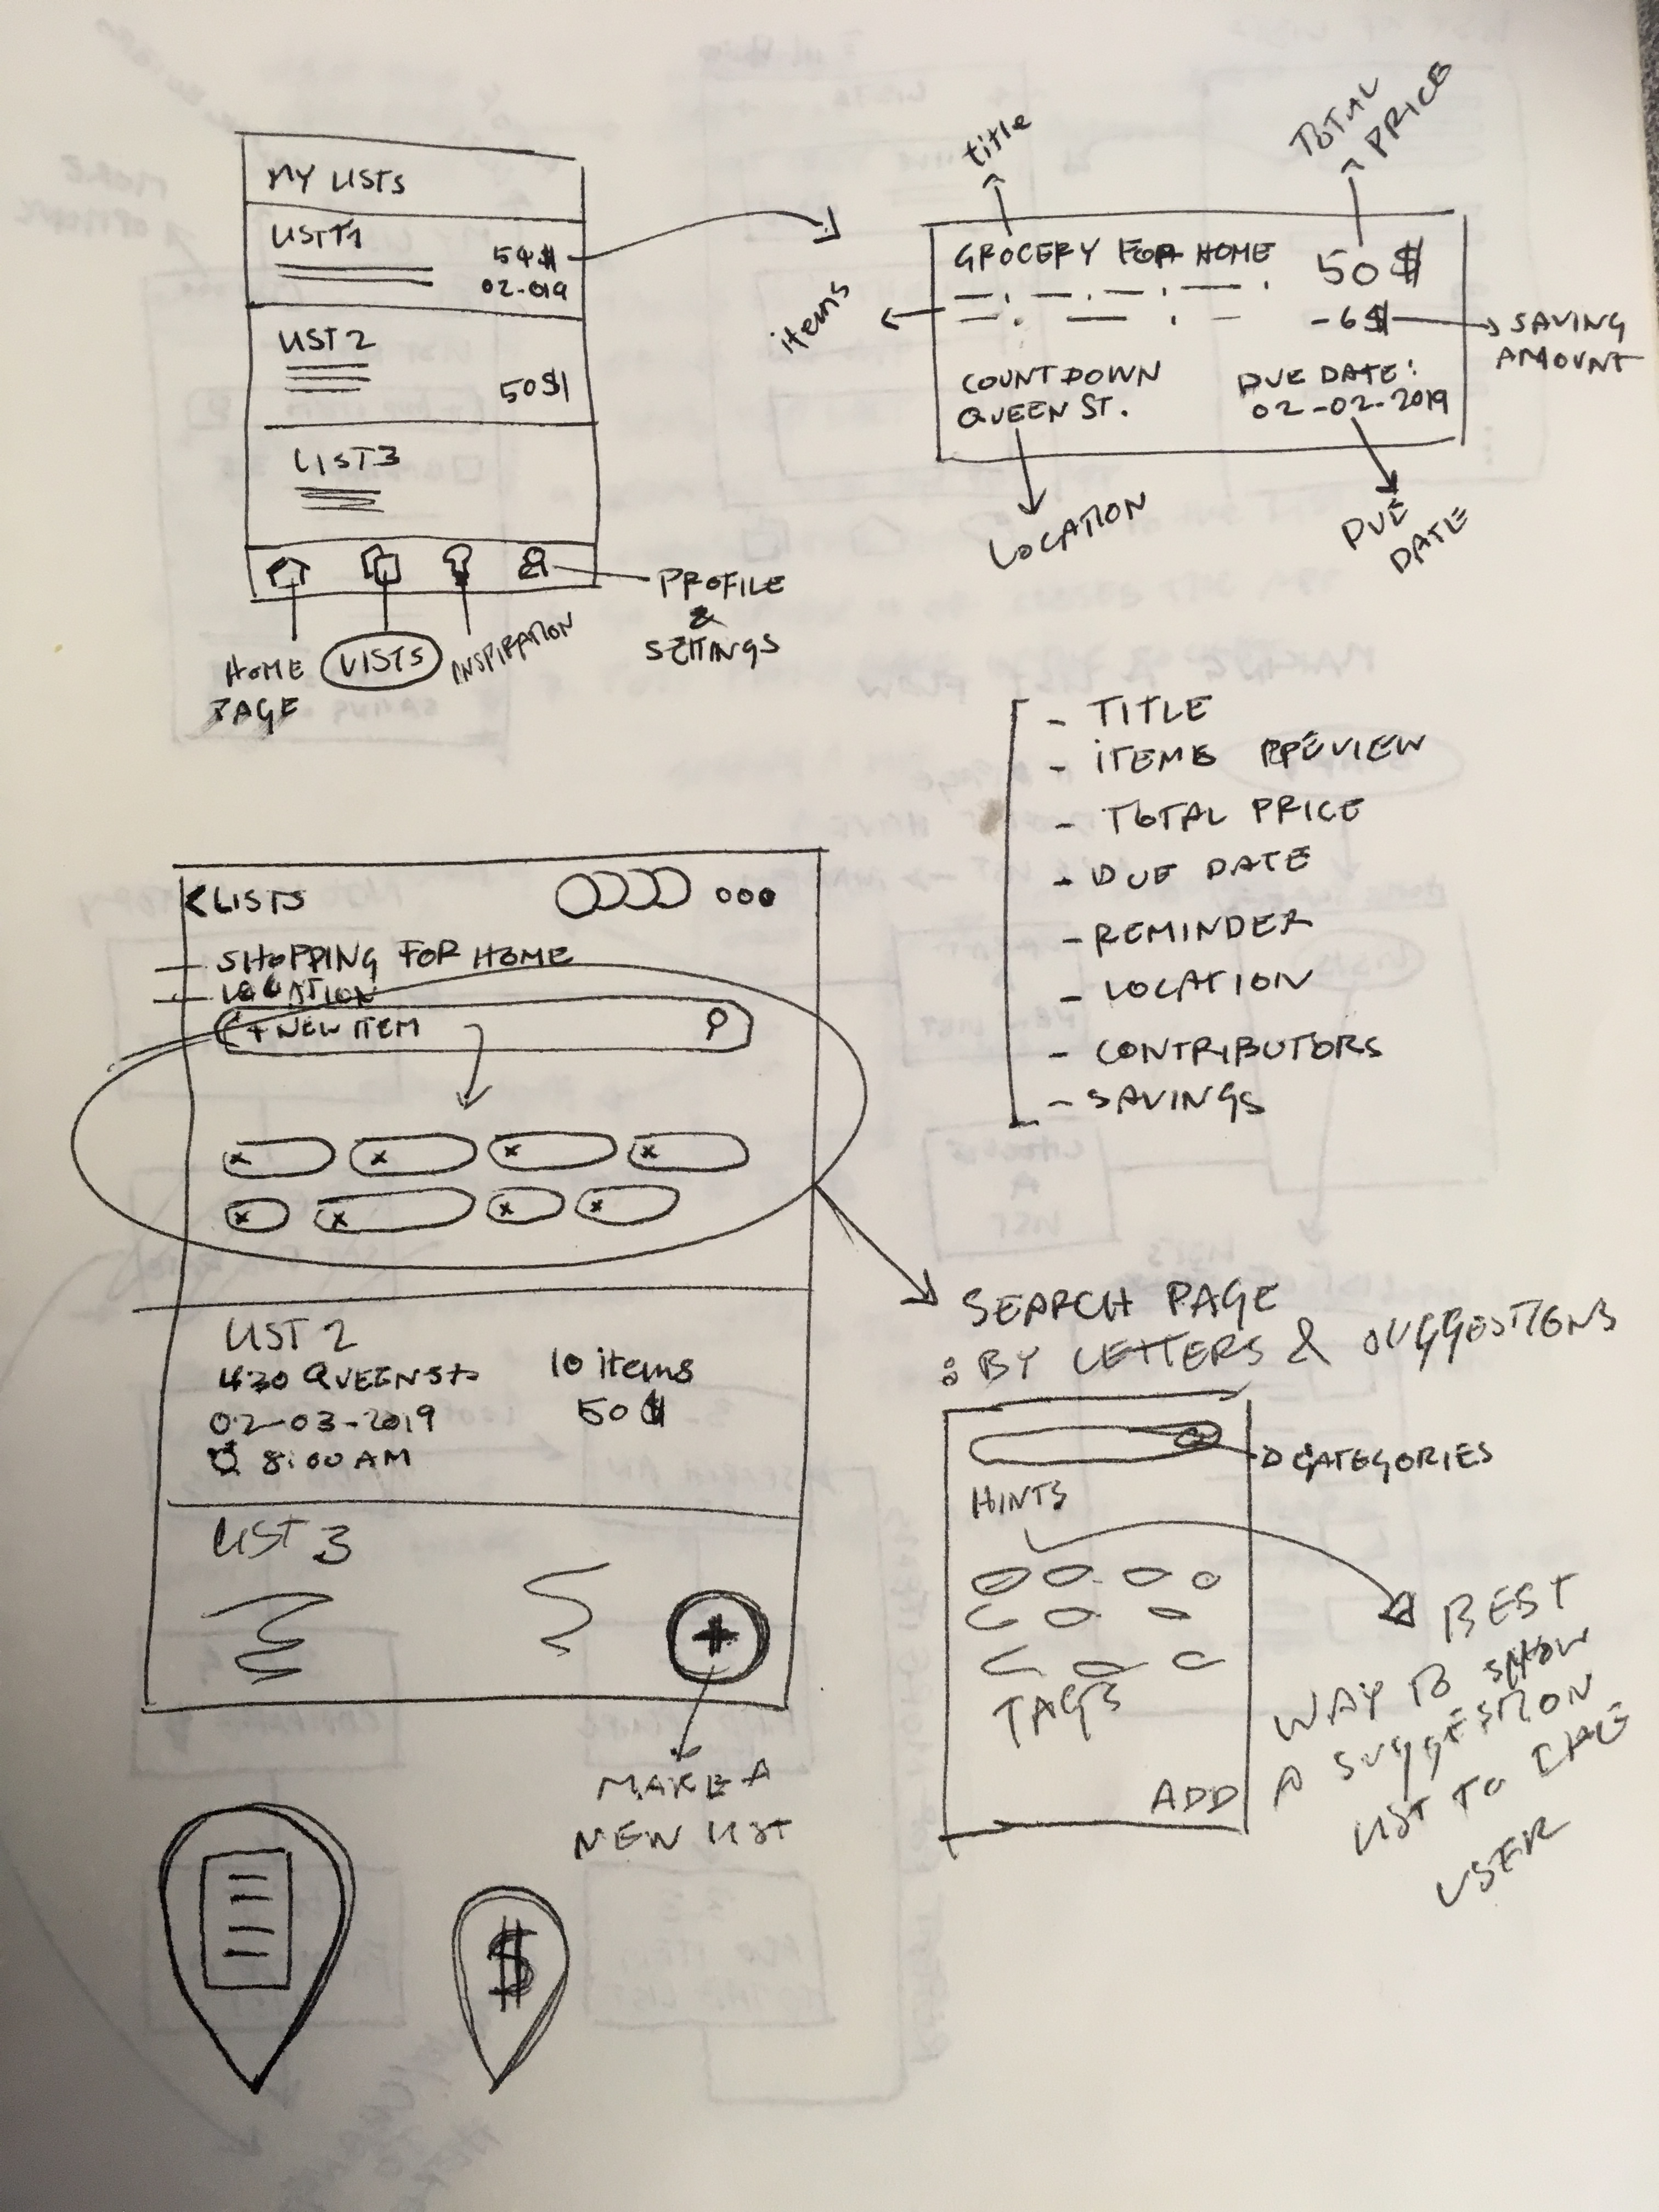 MY LISTS
LIST 1
54$
02-019
LIST 2
50$
LIST 3
HOME
PAGE
LISTS
INSPIRATION
PROFILE
&
SETTINGS
title
TOTAL
PRICE
items
GROCERY FOR HOME
50$
-6$
SAVING
AMOUNT
COUNTDOWN
QUEEN ST.
DUE DATE:
02-02-2019
LOCATION
DUE
DATE
- TITLE
- ITEMS PREVIEW
- TOTAL PRICE
- DUE DATE
- REMINDER
- LOCATION
- CONTRIBUTORS
- SAVINGS
< LISTS
SHOPPING FOR HOME
LOCATION
+ NEW ITEM
x x x x
x x x x
LIST 2
430 QUEEN St.
10 items
02-03-2019
50$
8:00 AM
LIST 3
+
MAKE A
NEW LIST
SEARCH PAGE
: BY LETTERS & SUGGESTIONS
CATEGORIES
HINTS
TAGS
ADD
BEST
WAY TO SHOW
A SUGGESTION
LIST TO THE
USER
$